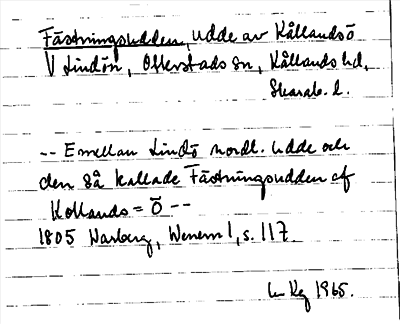 Fästningsudden, udde av Kållandsö
V Lindön, Otterstads sn, Kållands hd,
Skarab. l.
-- Emellan Lindö nordl. udde och
den så kallade Fästningsudden af
Kollands=Ö --
1805 Warberg, Wenern 1, s. 117.
1965.